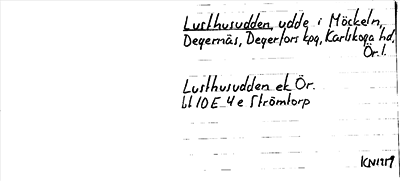 Lusthusudden, udde i Möckeln,
Degernäs, Degerfors kpg, Karlskoga hd.
Ör. l.
Lusthusudden ek Ör.
bl 10 E 4 e Strömtorp